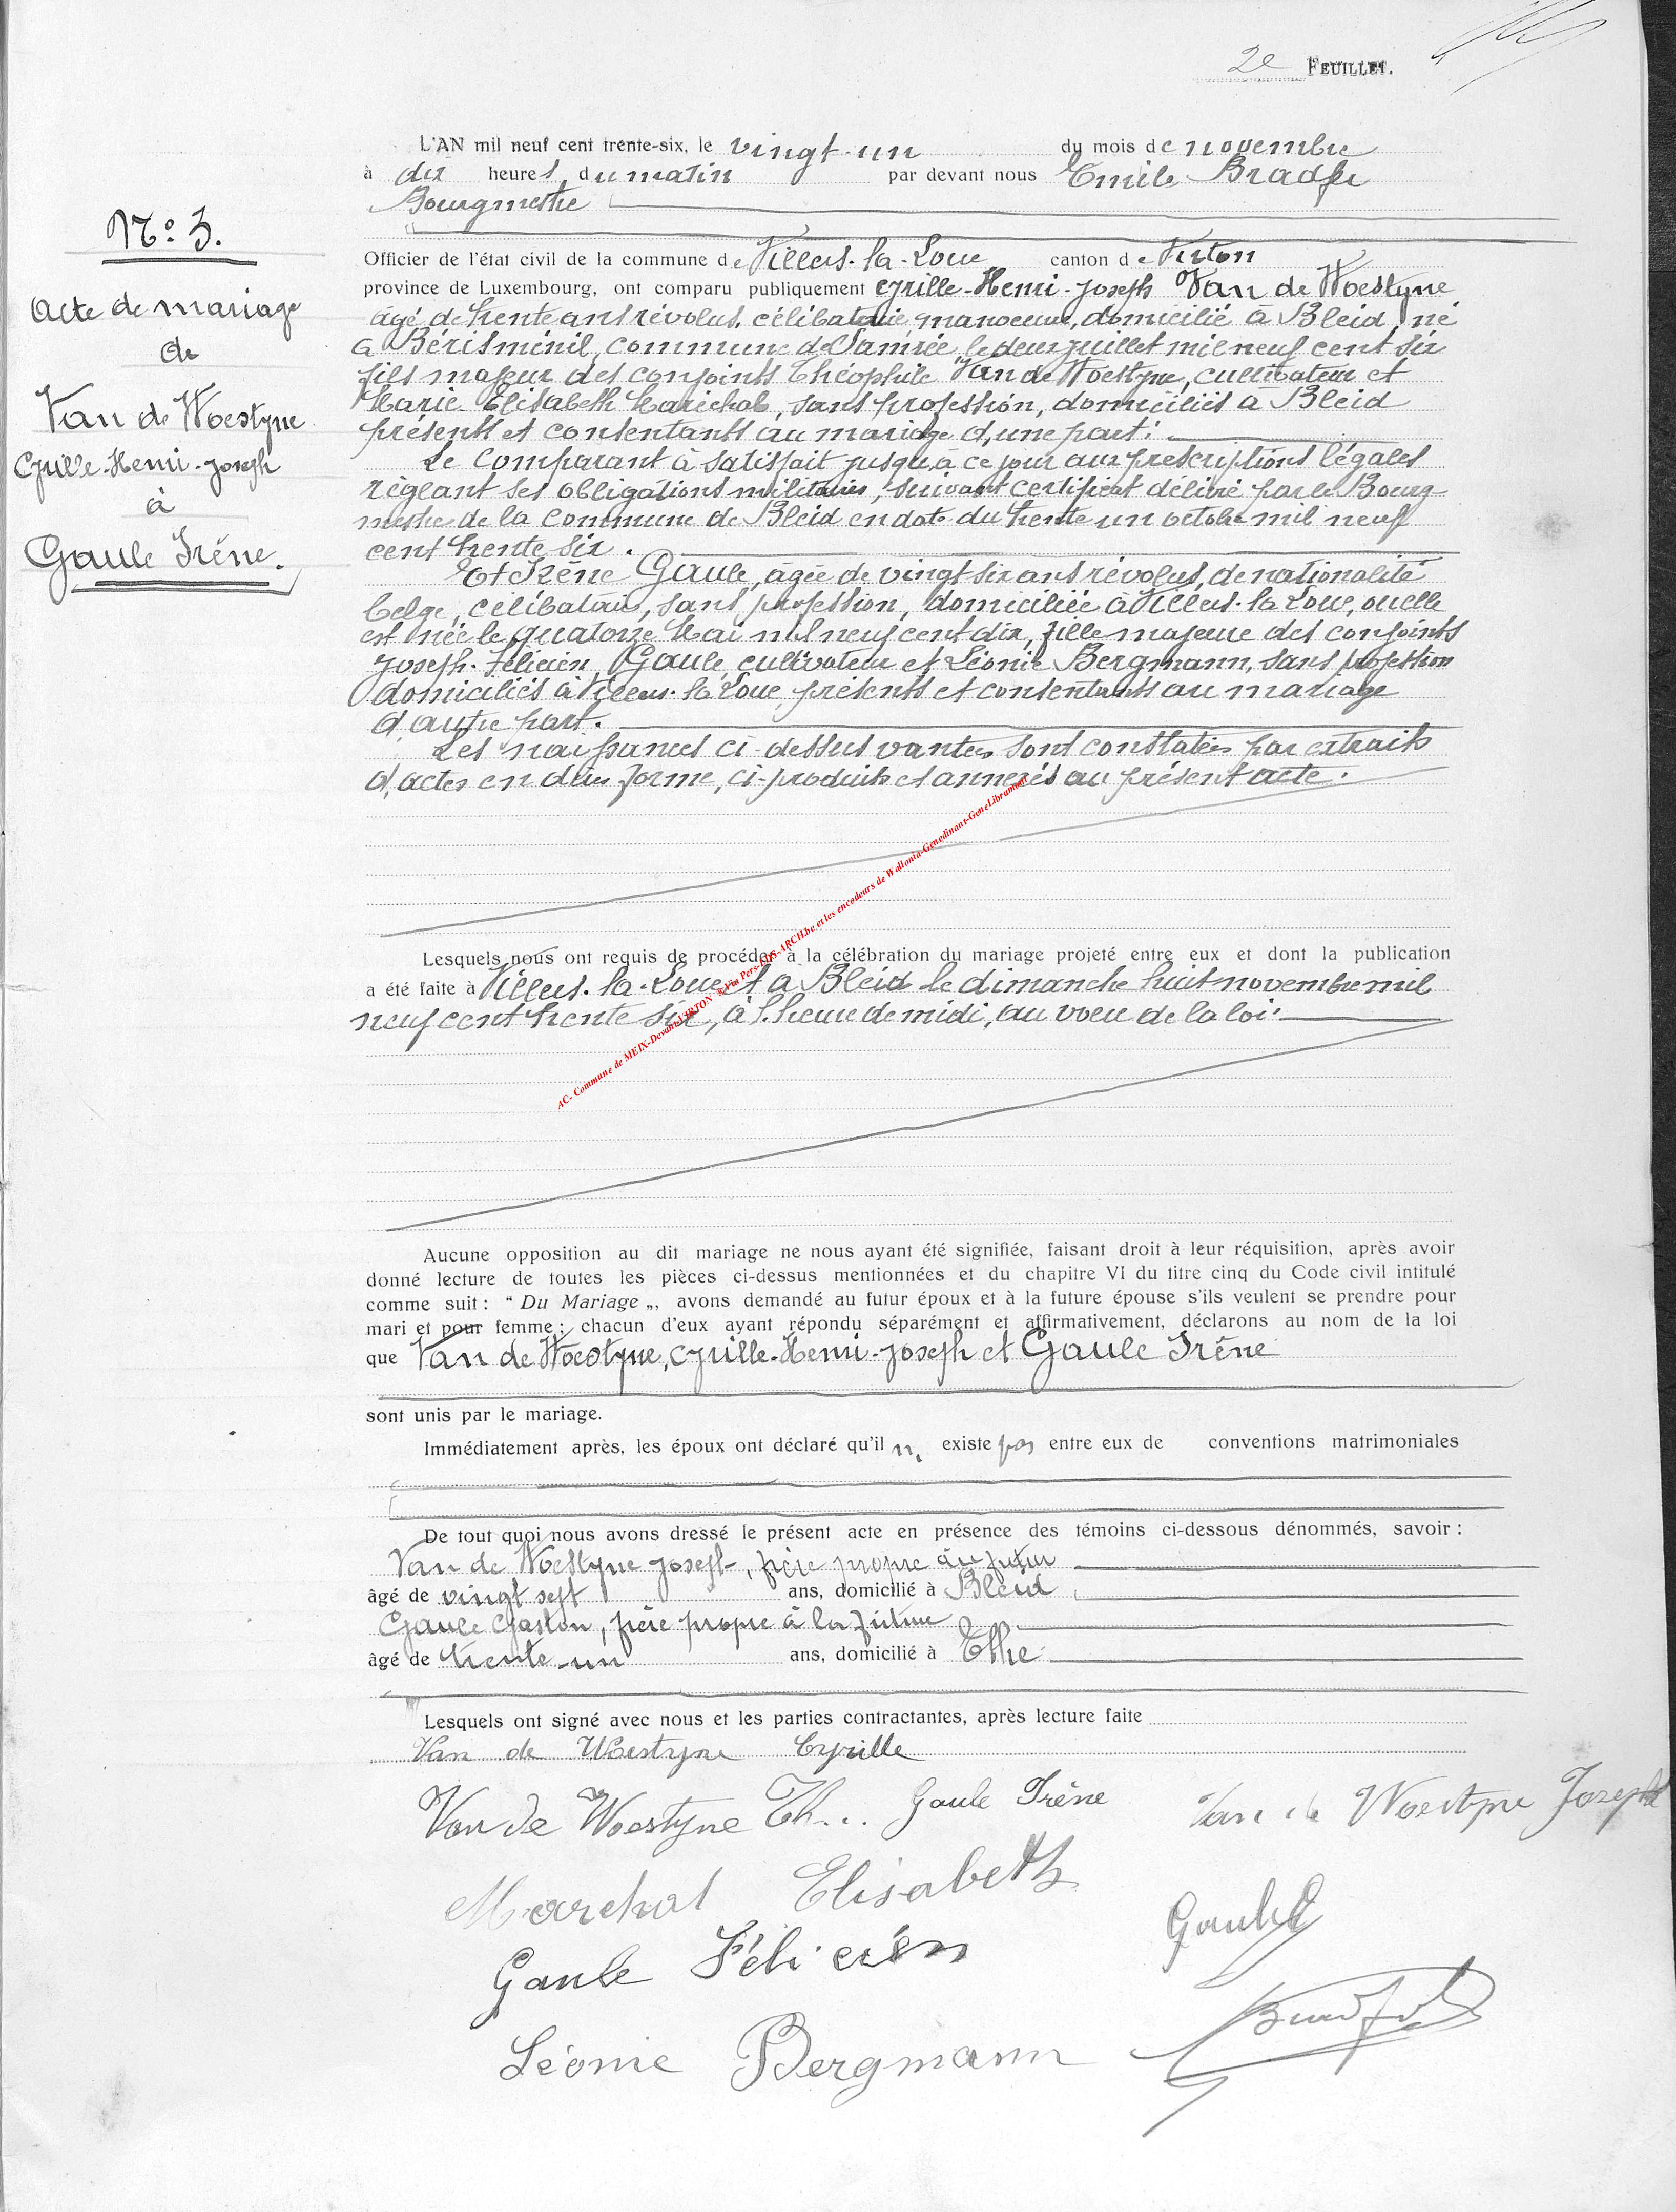 2e FEUILLET.
L'AN mil neuf cent trente-six, le vingt-un du mois de novembre
à dix heures du matin par devant nous Emile Bradfer
Bourgmestre
Nº 3.
Acte de mariage
de
Van de Woestyne
Cyrille-Henri-Joseph
à
Gaule Irène.
Officier de l'état civil de la commune de Villers-la-Loue canton de Virton
province de Luxembourg, ont comparu publiquement Cyrille-Henri-Joseph Van de Woestyne
âgé de trente ans révolus, célibataire, manoeuvre, domicilié à Bleid, né
à Bérisménil, commune de Samrée, le deux juillet mil neuf cent six
fils majeur des conjoints Théophile Van de Woestyne, cultivateur et
Marie Elisabeth Maréchal, sans profession, domiciliés à Bleid
présents et consentants au mariage d'une part.
Le comparant à satisfait jusqu'à ce jour aux prescriptions légales
règlant ses obligations militaires, suivant certificat délivré par le Bourg-
mestre de la commune de Bleid en date du trente un octobre mil neuf
cent trente six.
Et Irène Gaule, âgée de vingt six ans révolus, de nationalité
belge, célibataire, sans profession, domiciliée à Villers-la-Loue, ou elle
est née le quatorze Mai mil neuf cent dix, fille majeure des conjoints
Joseph-Félicien Gaule, cultivateur et Léonie Bergmann, sans profession
domiciliés à Villers-la-Loue, présents et consentants au mariage
d'autre part.
Les naissances ci-dessus vantées sont constatées par extraits
d'actes en dûe forme, ci-produits et annexés au présent acte.
AC- Commune de MEIX-Devant-VIRTON ©Via Pers-EDS-ARCH.be et les encodeurs de Wallonia-Genedinant-GeneLibramont
Lesquels nous ont requis de procéder à la célébration du mariage projeté entre eux et dont la publication
a été faite à Villers-la-Loue et à Bleid le dimanche huit novembre mil
neuf cent trente six, à l'heure de midi, au voeu de la loi.
Aucune opposition au dit mariage ne nous ayant été signifiée, faisant droit à leur réquisition, après avoir
donné lecture de toutes les pièces ci-dessus mentionnées et du chapitre VI du titre cinq du Code civil intitulé
comme suit : “ Du Mariage „, avons demandé au futur époux et à la future épouse s'ils veulent se prendre pour
mari et pour femme ; chacun d'eux ayant répondu séparément et affirmativement, déclarons au nom de la loi
que Van de Woestyne, Cyrille-Henri-Joseph et Gaule Irène
sont unis par le mariage.
Immédiatement après, les époux ont déclaré qu'il n' existe pas entre eux de conventions matrimoniales
De tout quoi nous avons dressé le présent acte en présence des témoins ci-dessous dénommés, savoir :
Van de Woestyne Joseph, frère propre au futur
âgé de vingt sept ans, domicilié à Bleid
Gaule Gaston, frère propre à la future
âgé de trente-un ans, domicilié à Ethe
Lesquels ont signé avec nous et les parties contractantes, après lecture faite
Van de Woestyne Cyrille
Van de Woestyne Th... Gaule Irène Van de Woestyne Joseph
Marchal Elisabeth
Gaule Félicien
Léonie Bergmann